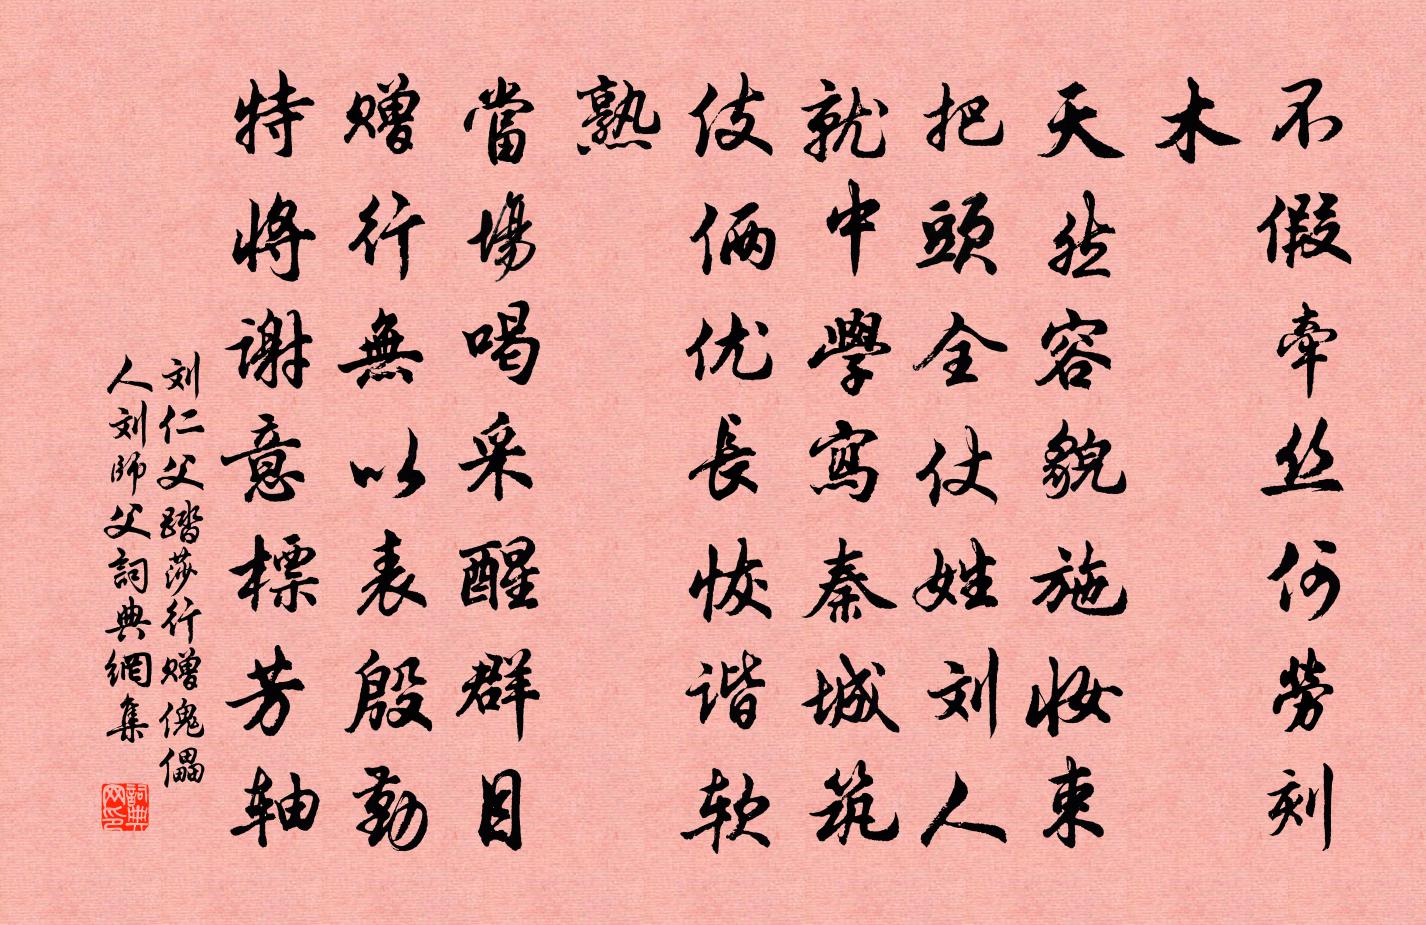 不假牽丝何勞刻
木
天然容貌施妝束
把頭全仗姓刘人
就中學寫秦城筑
伎俩优長恢谐软
熟
當場喝采醒群目
赠行無以表殷勤
特將谢意標芳轴
刘仁父踏莎行赠傀儡
人刘師父詞典網集
詞典
网印